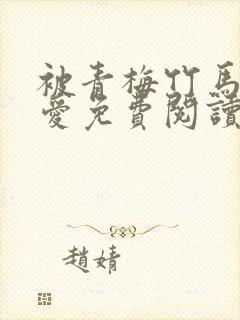 被青梅竹馬
愛免費閱讀
趙婧